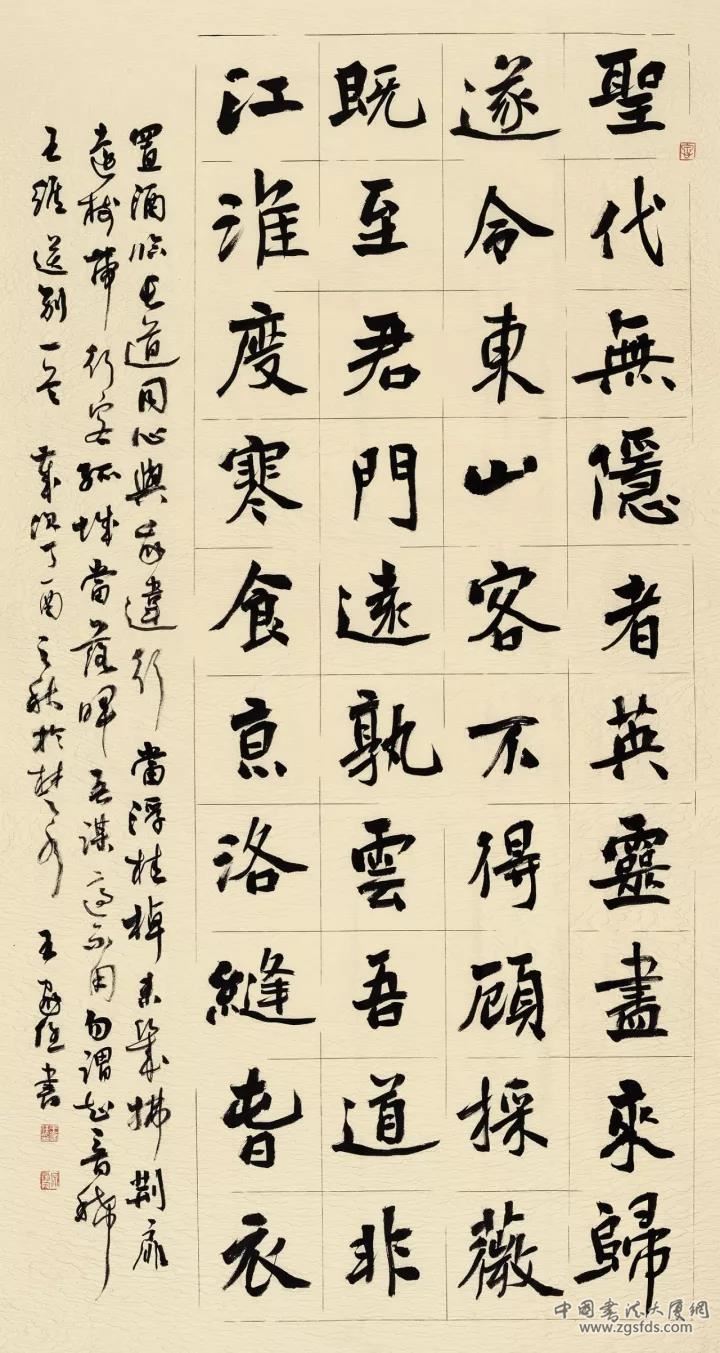 聖代無隱者英靈盡來歸
遂令東山客不得顧採薇
既至君門遠孰雲吾道非
江淮度寒食京洛縫春衣
置酒臨長道同心與我違行當浮桂棹未幾拂荊扉
遠樹帶行客孤城當落暉吾謀適不用勿謂知音稀
王維送別一首 歲次丁酉之秋於 王 書
中国书法大厦網
www.zgsfds.com